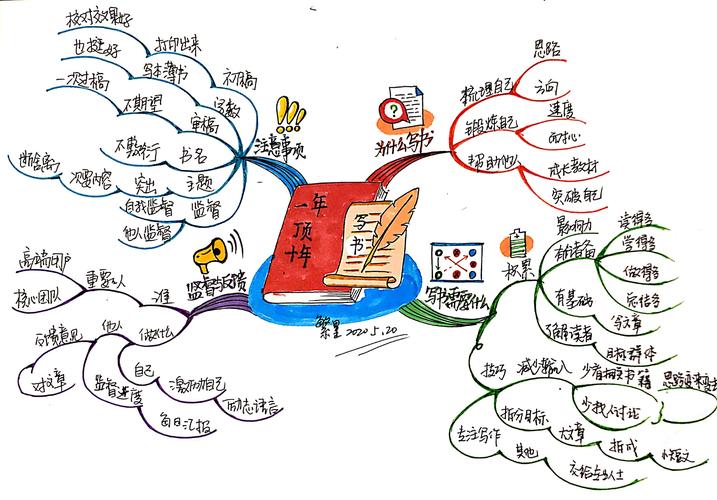 一年
顶
十年
写
书
繁星 2020.5.20
为什么写书
梳理自己
思路
方向
锻炼自己
速度
耐心
帮助他人
成长教材
突破自己
写书需要什么
效果
有储备
影响力
读得多
学得多
做得多
有基础
写文章
了解读者
目标群体
技巧
减少输入
少看相关书籍
思路变来变去
少找人讨论
专注写作
拆分目标
大文章
拆成
小短文
其他
交给专业人士
监督与反馈
谁
重要人
高端用户
核心团队
做什么
他人
反馈意见
对文章
监督进度
每日汇报
自己
激励自己
励志语言
注意事项
初稿
打印出来
核对效果好
字数
写本薄书
也挺好
审稿
不期望
一次过稿
书名
不敷衍
主题
突出
次要内容
断舍离
监督
自我监督
他人监督